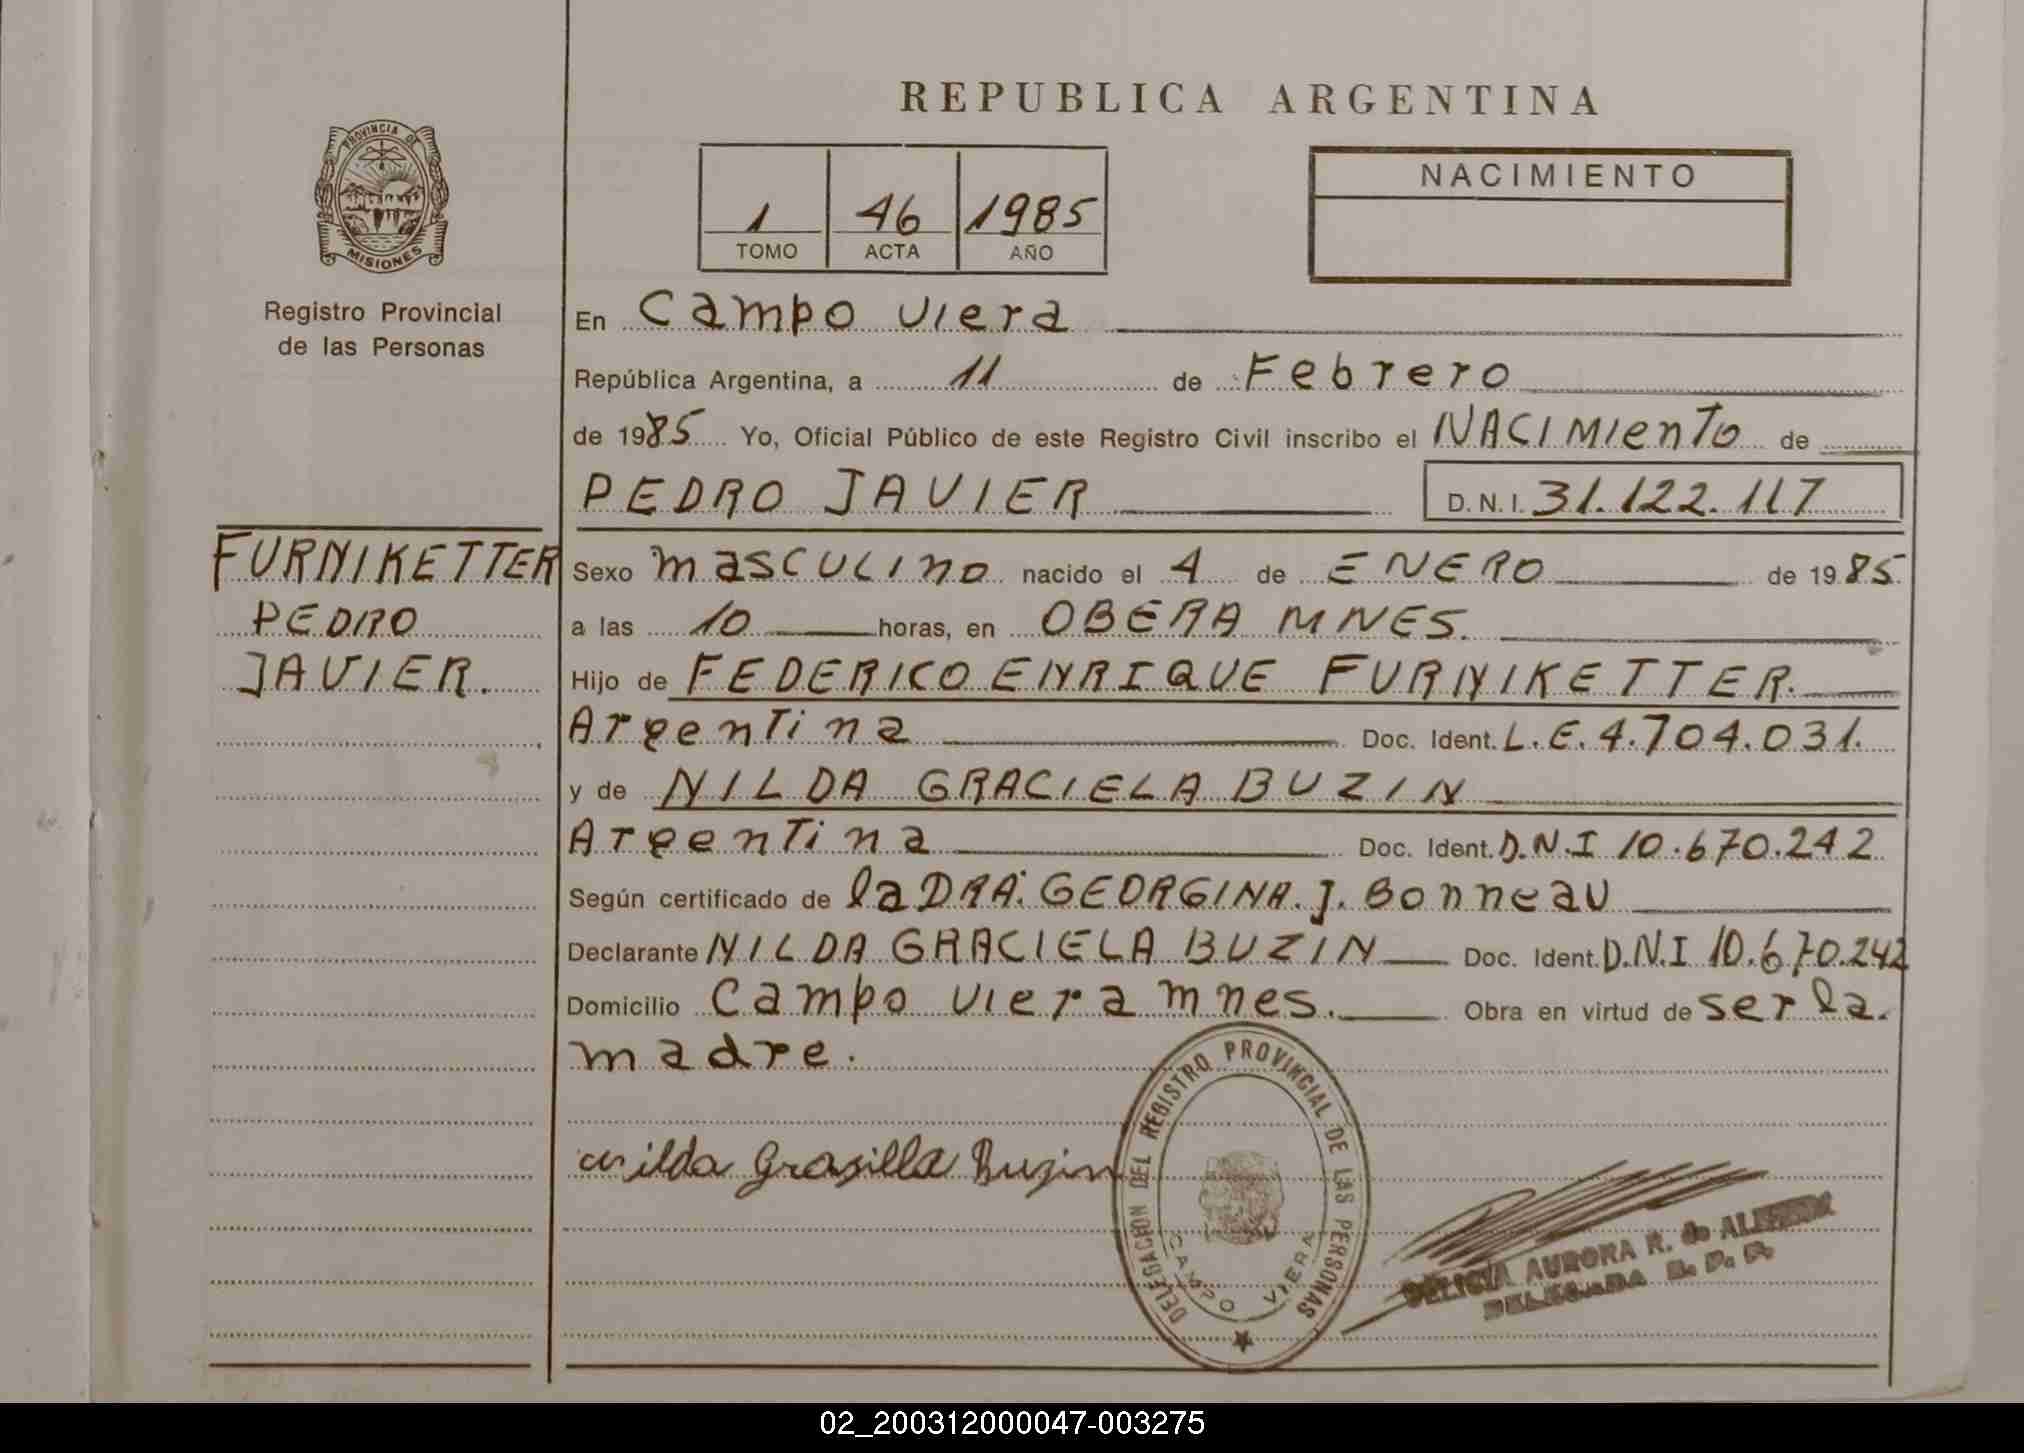 REPUBLICA ARGENTINA
PROVINCIA DE
MISIONES
Registro Provincial
de las Personas
1 46 1985
TOMO ACTA AÑO
NACIMIENTO
En Campo Viera
República Argentina, a 11 de Febrero
de 1985 Yo, Oficial Público de este Registro Civil inscribo el NACIMIENTO de
PEDRO JAVIER D.N.I. 31.122.117
FURNIKETTER
PEDRO
JAVIER.
Sexo masculino nacido el 4 de ENERO de 1985
a las 10 horas, en OBERA MNES.
Hijo de FEDERICO ENRIQUE FURNIKETTER.
Argentina Doc. Ident. L.E. 4.704.031.
y de NILDA GRACIELA BUZIN
Argentina Doc. Ident. D.N.I 10.670.242
Según certificado de la DRA. GEORGINA. J. Bonneau
Declarante NILDA GRACIELA BUZIN Doc. Ident. D.N.I 10.670.242
Domicilio Campo Viera mnes. Obra en virtud de ser la.
madre.
nilda Grasilla Buzin
DELEGACION DEL REGISTRO PROVINCIAL DE LAS PERSONAS
CAMPO VIERA
DELICIA AURORA R. de
DELEGADA R. P. P.
02_200312000047-003275